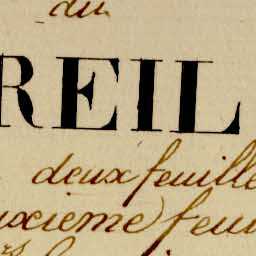 du
REIL
deux feuille
uxieme feui